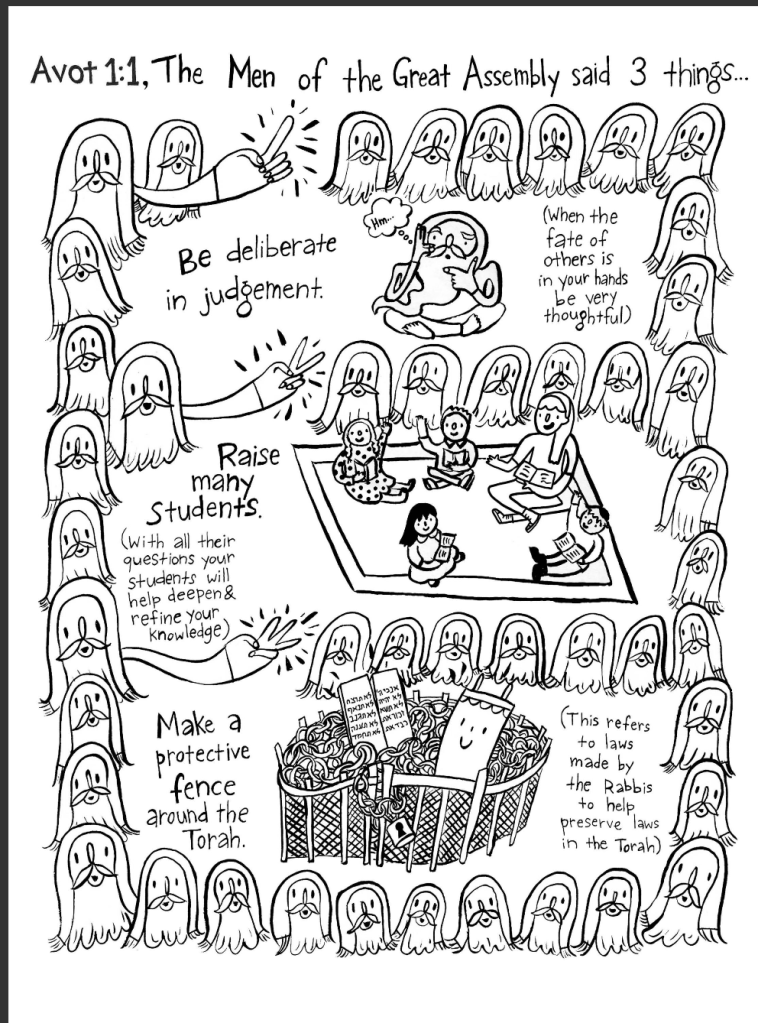 Avot 1:1, The Men of the Great Assembly said 3 things...
Be deliberate
in judgement.
Hm...
(When the
fate of
others is
in your hands
be very
thoughtful)
Raise
many
Students.
(With all their
questions your
students will
help deepen &
refine your
knowledge)
Make a
protective
fence
around the
Torah.
אנכי ה'
לא יהיה
לא תשא
זכור את
כבד את
לא תרצח
לא תנאף
לא תגנב
לא תענה
לא תחמד
(This refers
to laws
made by
the Rabbis
to help
preserve laws
in the Torah)